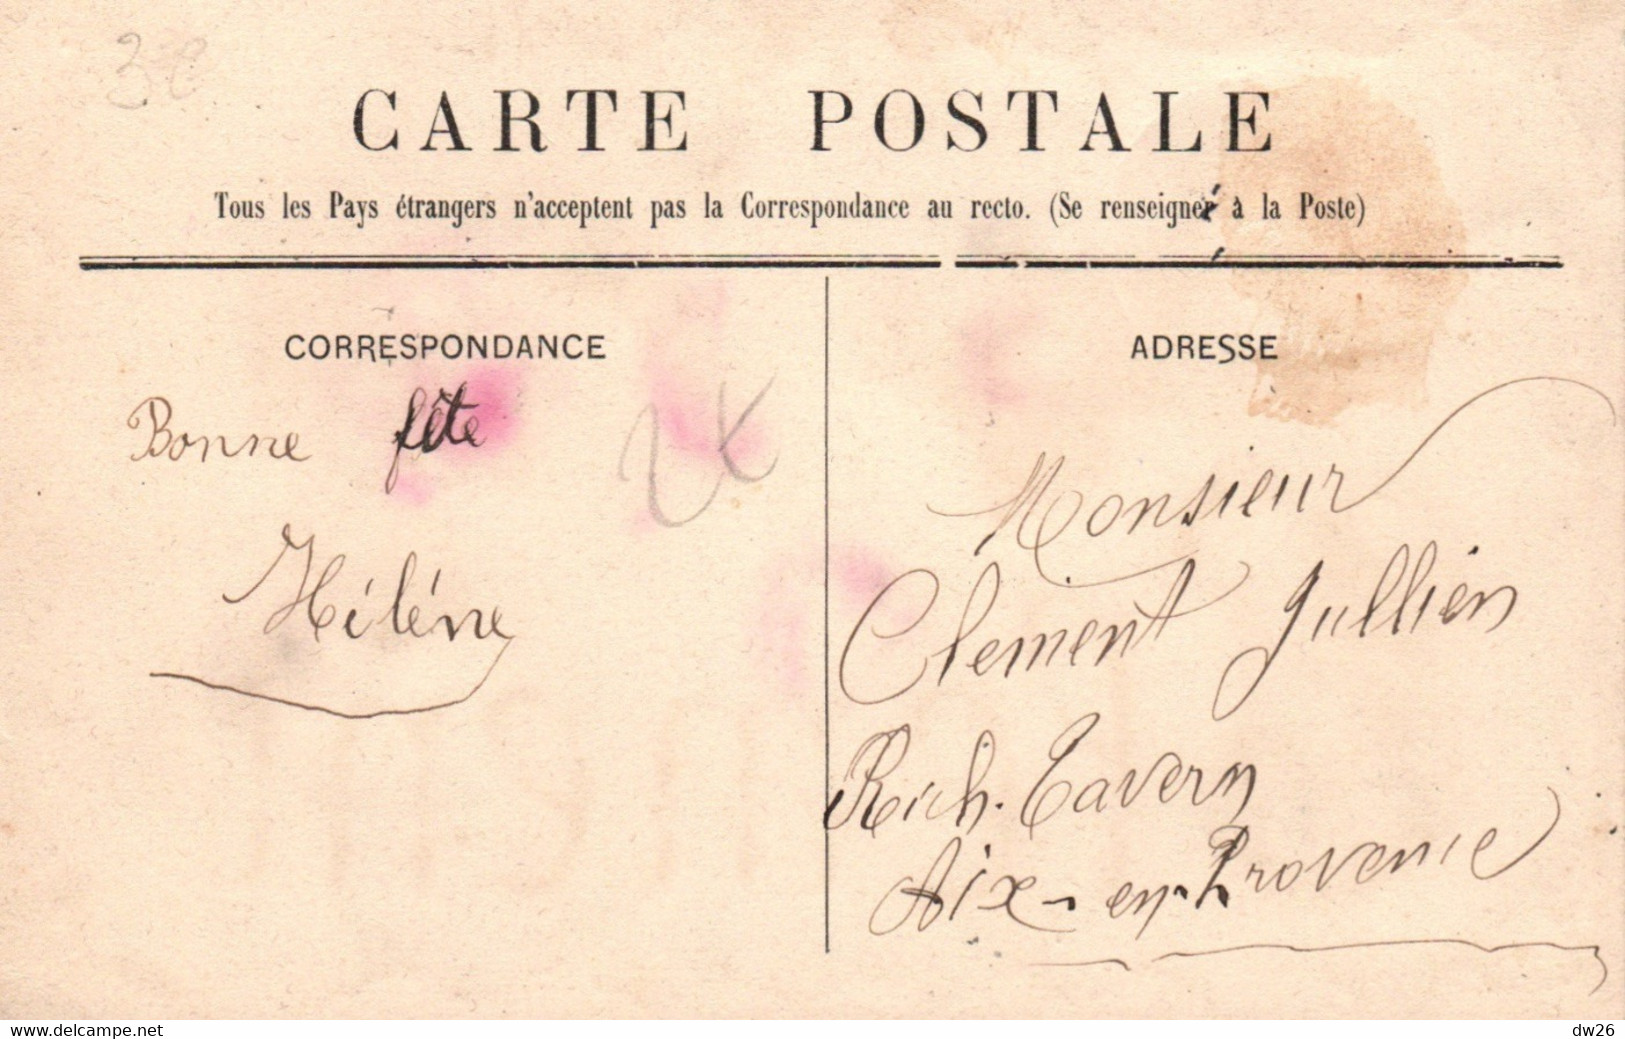 3€
CARTE POSTALE
Tous les Pays étrangers n'acceptent pas la Correspondance au recto. (Se renseigner à la Poste)
CORRESPONDANCE
Bonne fête
Hélène
ADRESSE
Monsieur
Clement Jullien
Rich. Tavern
Aix-en-Provence
www.delcampe.net
dw26